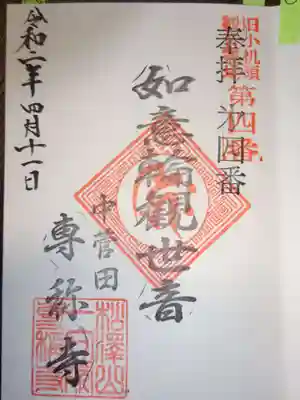 旧小机領
第四番
奉拝 第四番
如意輪観世音
中菅田
専称寺
令和二年四月十一日
松澤山